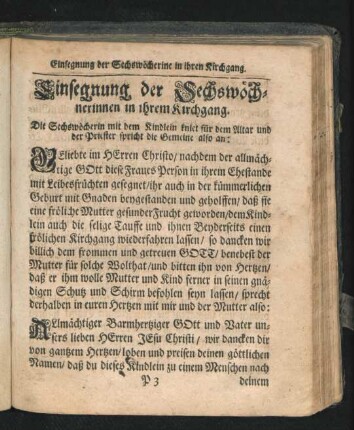 Einsegnung der Sechswöcherine in ihren Kirchgang.
Einsegnung der Sechswöch-
nerinnen in ihrem Kirchgang.
Die Sechswöcherin mit dem Kindlein kniet für dem Altar und
der Priester spricht die Gemeine also an:
GEliebte im HErren Christo/ nachdem der allmäch-
tige GOtt diese Fraues Person in ihrem Ehestande
mit Leibesfrüchten gesegnet/ihr auch in der kümmerlichen
Geburt mit Gnaden beygestanden und geholffen/ daß sie
eine fröliche Mutter gesunder Frucht geworden/dem Kind-
lein auch die selige Tauffe und ihnen Beyderseits einen
frölichen Kirchgang wiederfahren lassen/ so dancken wir
billich dem frommen und getreuen GOTT/ benebest der
Mutter für solche Wolthat/und bitten ihn von Hertzen/
daß er ihm wolle Mutter und Kind ferner in seinen gnä-
digen Schutz und Schirm befohlen seyn lassen/ sprecht
derhalben in euren Hertzen mit mir und der Mutter also:
ALmächtiger Barmhertziger GOtt und Vater un-
sers lieben HErren JEsu Christi/ wir dancken dir
von gantzem Hertzen/loben und preisen deinen göttlichen
Namen/ daß du dieses Kindlein zu einem Menschen nach
P 3 deinem